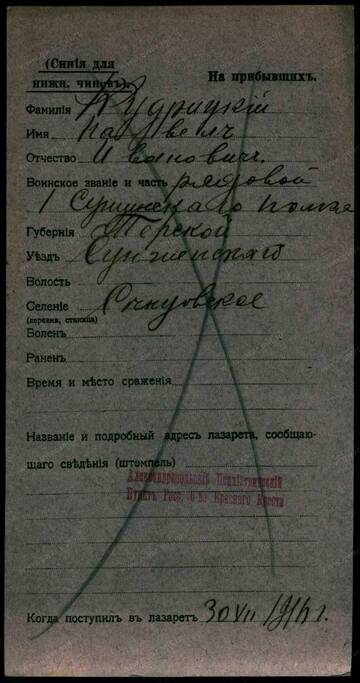 (Синія для
нижн. чиновъ).
На прибывшихъ.
Фамилія Кудрицкій
Имя Павелъ
Отчество Ивановичъ.
Воинское званіе и часть рядовой
1 Сунженскаго полка
Губернія Терской
Уѣздъ Сунженскій
Волость
Селеніе
(деревня, станица)
Боленъ
Раненъ
Время и мѣсто сраженія
Названіе и подробный адресъ лазарета, сообщаю-
щаго свѣдѣнія (штемпель)
Александропольскій Психіатрическій
Пунктъ Росс. О-ва Краснаго Креста
Когда поступилъ въ лазаретъ 30 VII 1916 г.